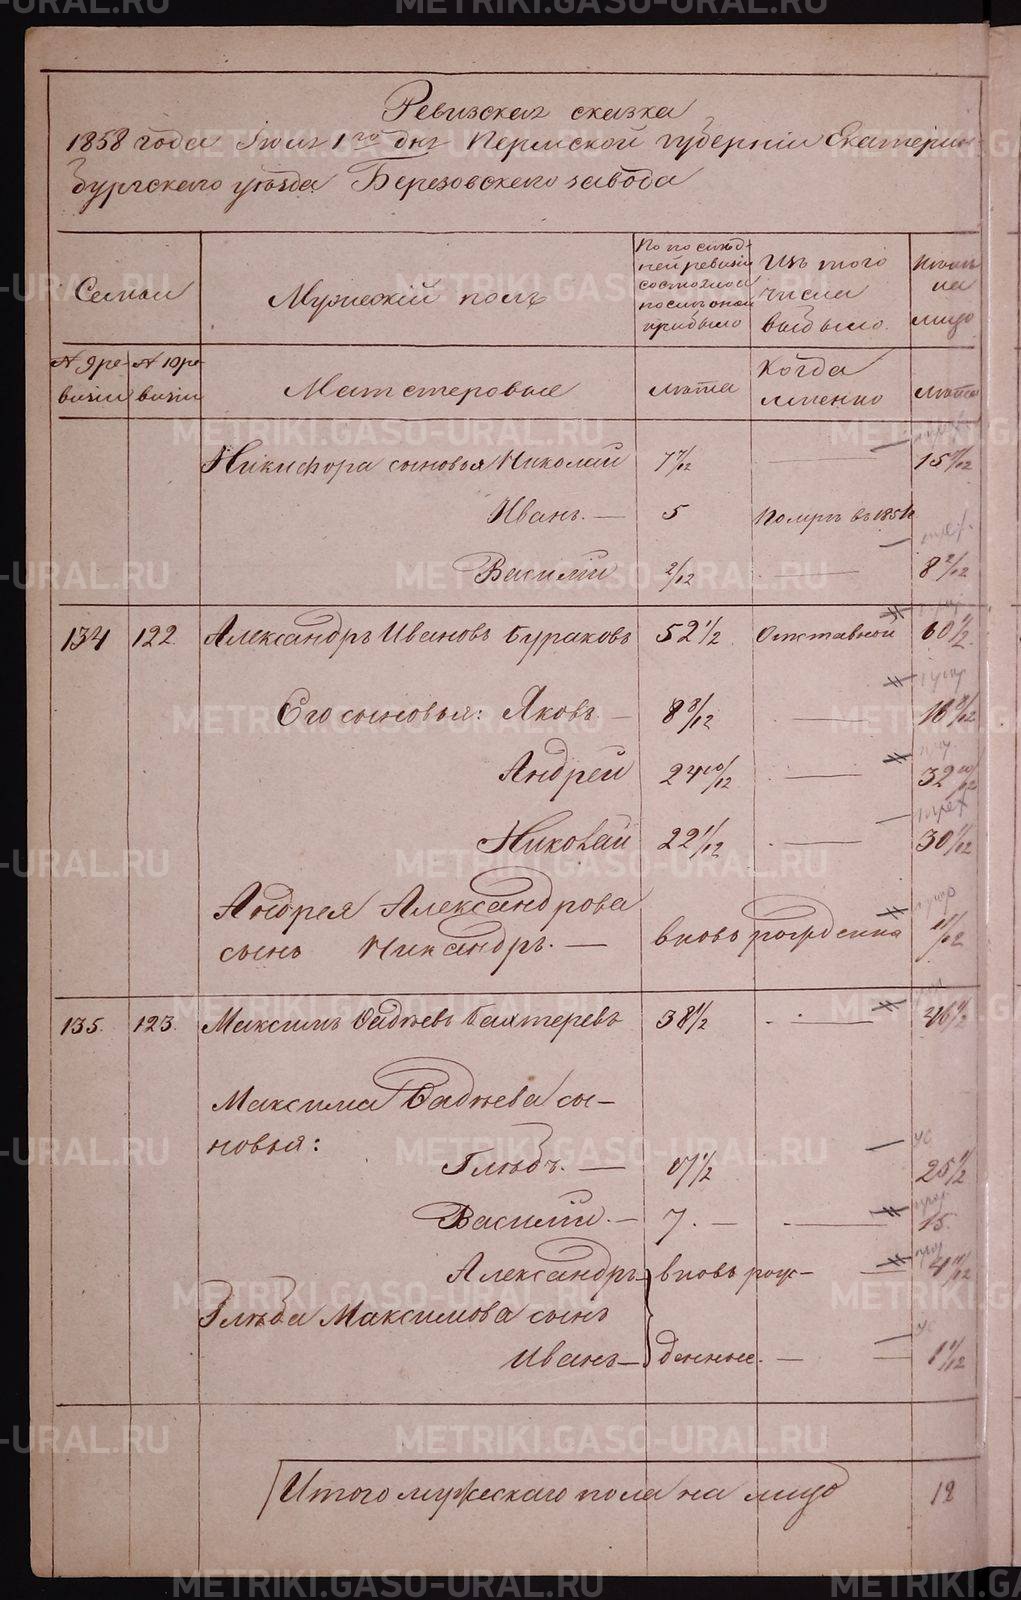 Ревизская сказка
1858 года Июля 1го дня Пермской губернiи Екатерин-
бургского уѣзда Березовскаго завода
Семьи
Мужескiй полъ
По послѣд-
ней ревизiи
состояло и
послѣ оной
прибыло
Изъ того
числа
выбыло.
Нынѣ
на
лицо
№ 9 ре-
визiи
№ 10 ре-
визiи
Мастеровые
лѣта
Когда
именно
лѣта
Никифора сыновья Николай 7 7/12 15 7/12
Иванъ. — 5 Померъ въ 1851 г.
Василiй 2/12 8 2/12
134 122. Александръ Ивановъ Бураковъ 52 1/2 Отставной 60 1/2
Его сыновья: Яковъ — 8 8/12 16 8/12
Андрей 24 10/12 32 10/12
Николай 22 1/12 30 1/12
Андрея Александрова
сынъ Никандръ. — вновь рожденна 11/12
135. 123. Максимъ Фадѣевъ Бахтеревъ 38 1/2 46 1/2
Максима Фадѣева сы-
новья:
Глѣбъ. — 17 1/2 25 1/2
Василiй. — 7. — 15.
Александръ вновь рож- 4 11/12
Глѣба Максимова сынъ
Иванъ — денные. — 1 1/12
Итого мужескаго пола на лицо 12
METRIKI.GASO-URAL.RU